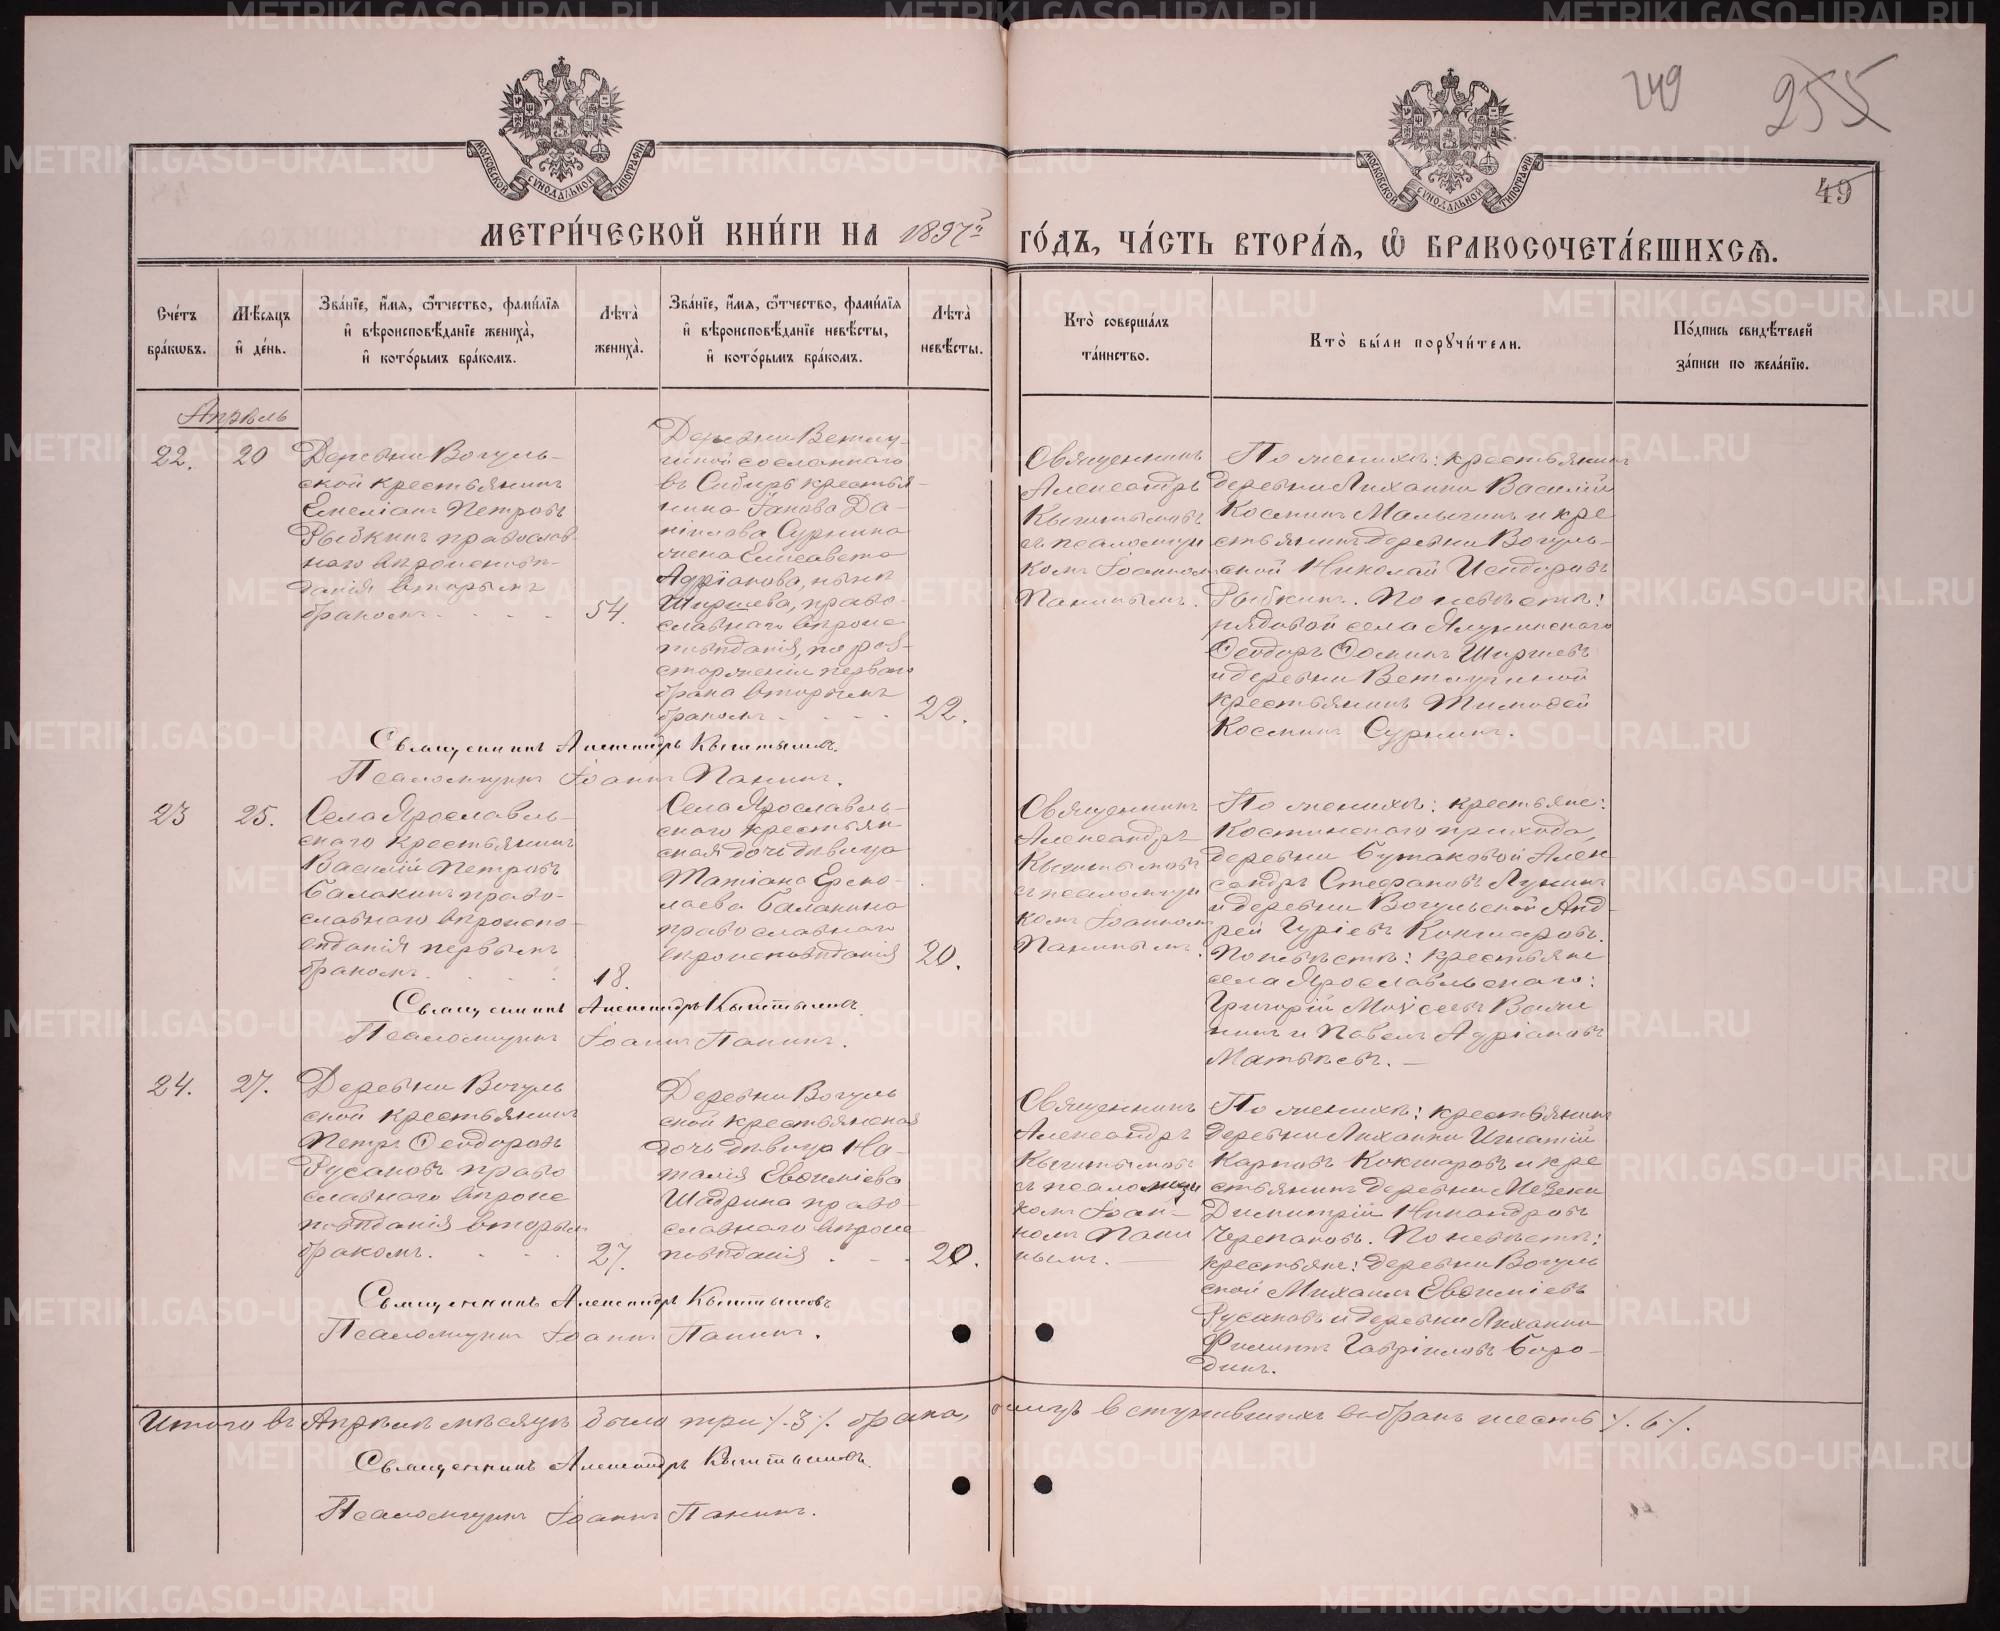 249
255
49
МОСКОВСКОЙ СѴНОДАЛЬНОЙ ТИПОГРАФІИ
МОСКОВСКОЙ СѴНОДАЛЬНОЙ ТИПОГРАФІИ
МЕТРИ́ЧЕСКОЙ КНИ́ГИ НА 1897й ГО́ДЪ, ЧА́СТЬ ВТОРА́Ѧ, Ѽ БРАКОСОЧЕТА́ВШИХСѦ.
Сче́тъ
бра́кѡвъ.
Мѣ́сѧцъ
и҆ де́нь.
Зва́нїе, и҆́мѧ, ѻ҆́тчество, фами́лїѧ
и҆ вѣроисповѣ́данїе жениха̀,
и҆ кото́рымъ бра́комъ.
Лѣ́та
жениха̀.
Зва́нїе, и҆́мѧ, ѻ҆́тчество, фами́лїѧ
и҆ вѣроисповѣ́данїе невѣ́сты,
и҆ кото́рымъ бра́комъ.
Лѣ́та
невѣ́сты.
Кто̀ соверша́лъ
та́инство.
Кто̀ бы́ли порꙋчи́тели.
По́дпись свидѣ́телей
за́писи по жела́нїю.
Апрѣль
22.
20
Деревни Вогуль-
ской крестьянинъ
Емеліанъ Петровъ
Рыбкинъ православ-
наго вѣроисповѣ-
данія вторымъ
бракомъ. . . . .
54.
Деревни Ветлу-
гиной сосланнаго
въ Сибирь крестья-
нина Іакова Да-
ніилова Сурнина
жена Елисавета
Адріанова, нынѣ
Ширшева, право-
славнаго вѣроис
повѣданія, по рас-
торженіи перваго
брака вторымъ
бракомъ. . . . .
22.
Священникъ
Александръ
Кыштымовъ
съ псаломщи
комъ Іоанномъ
Панинымъ.
По женихѣ: крестьянинъ
деревни Лиханки Василій
Космин Малыгинъ и кре
стьянинъ деревни Вогуль-
ской Николай Исидоровъ
Рыбкинъ. По невѣстѣ:
рядовой села
Ѳеодоръ Ѳоминъ Ширшевъ
и деревни Ветлугиной
крестьянинъ Тимофей
Косминъ Сурнинъ.
Священникъ Александръ Кыштымовъ.
Псаломщикъ Іоаннъ Панинъ.
23
25.
Села Ярославль-
скаго крестьянинъ
Василій Петровъ
Балакинъ право-
славнаго вѣроиспо-
вѣданія первымъ
бракомъ. . . . .
18.
Села Ярославль-
скаго крестьян
ская дочь дѣвица
Татіана Ермо-
лаева Балакина
православнаго
вѣроисповѣданія
20.
Священникъ
Александръ
Кыштымовъ
съ псаломщи
комъ Іоанномъ
Панинымъ.
По женихѣ: крестьяне:
Костинскаго прихода,
деревни Бутаковой Алек-
сандръ Стефановъ Лукинъ
и деревни Вогульской Анд-
рей Гуріевъ Кокшаровъ.
По невѣстѣ: крестьяне
села Ярославльскаго:
Григорій Моѵсеевъ
и Павелъ Адріановъ
Матвѣевъ. —
Священникъ Александръ Кыштымовъ.
Псаломщикъ Іоаннъ Панинъ.
24.
27.
Деревни Вогуль
ской крестьянинъ
Петръ Ѳеодоровъ
Русаковъ право
славнаго вѣроис
повѣданія вторымъ
бракомъ. . . . .
27.
Деревни Вогуль
ской крестьянская
дочь дѣвица На-
талія Евѳиміева
Шадрина право-
славнаго вѣроис
повѣданія . - -
20.
Священникъ
Александръ
Кыштымовъ
съ псаломщи
комъ Іоан-
номъ Пани
нымъ. —
По женихѣ: крестьянинъ
деревни Лиханки Игнатій
Карповъ Кокшаровъ и кре
стьянинъ деревни Мезени
Димитрій Никандровъ
Черепановъ. По невѣстѣ:
крестьяне: деревни Вогуль
ской Михаилъ Евѳиміевъ
Русаковъ и деревни Лиханки
Филиппъ Гавріиловъ Боро-
динъ.
Священникъ Александръ Кыштымовъ
Псаломщикъ Іоаннъ Панинъ.
Итого въ Апрѣлѣ мѣсяцѣ было три /.3/. брака, лицъ вступившихъ въ бракъ шесть /.6/.
Священникъ Александръ Кыштымовъ.
Псаломщикъ Іоаннъ Панинъ.
METRIKI.GASO-URAL.RU